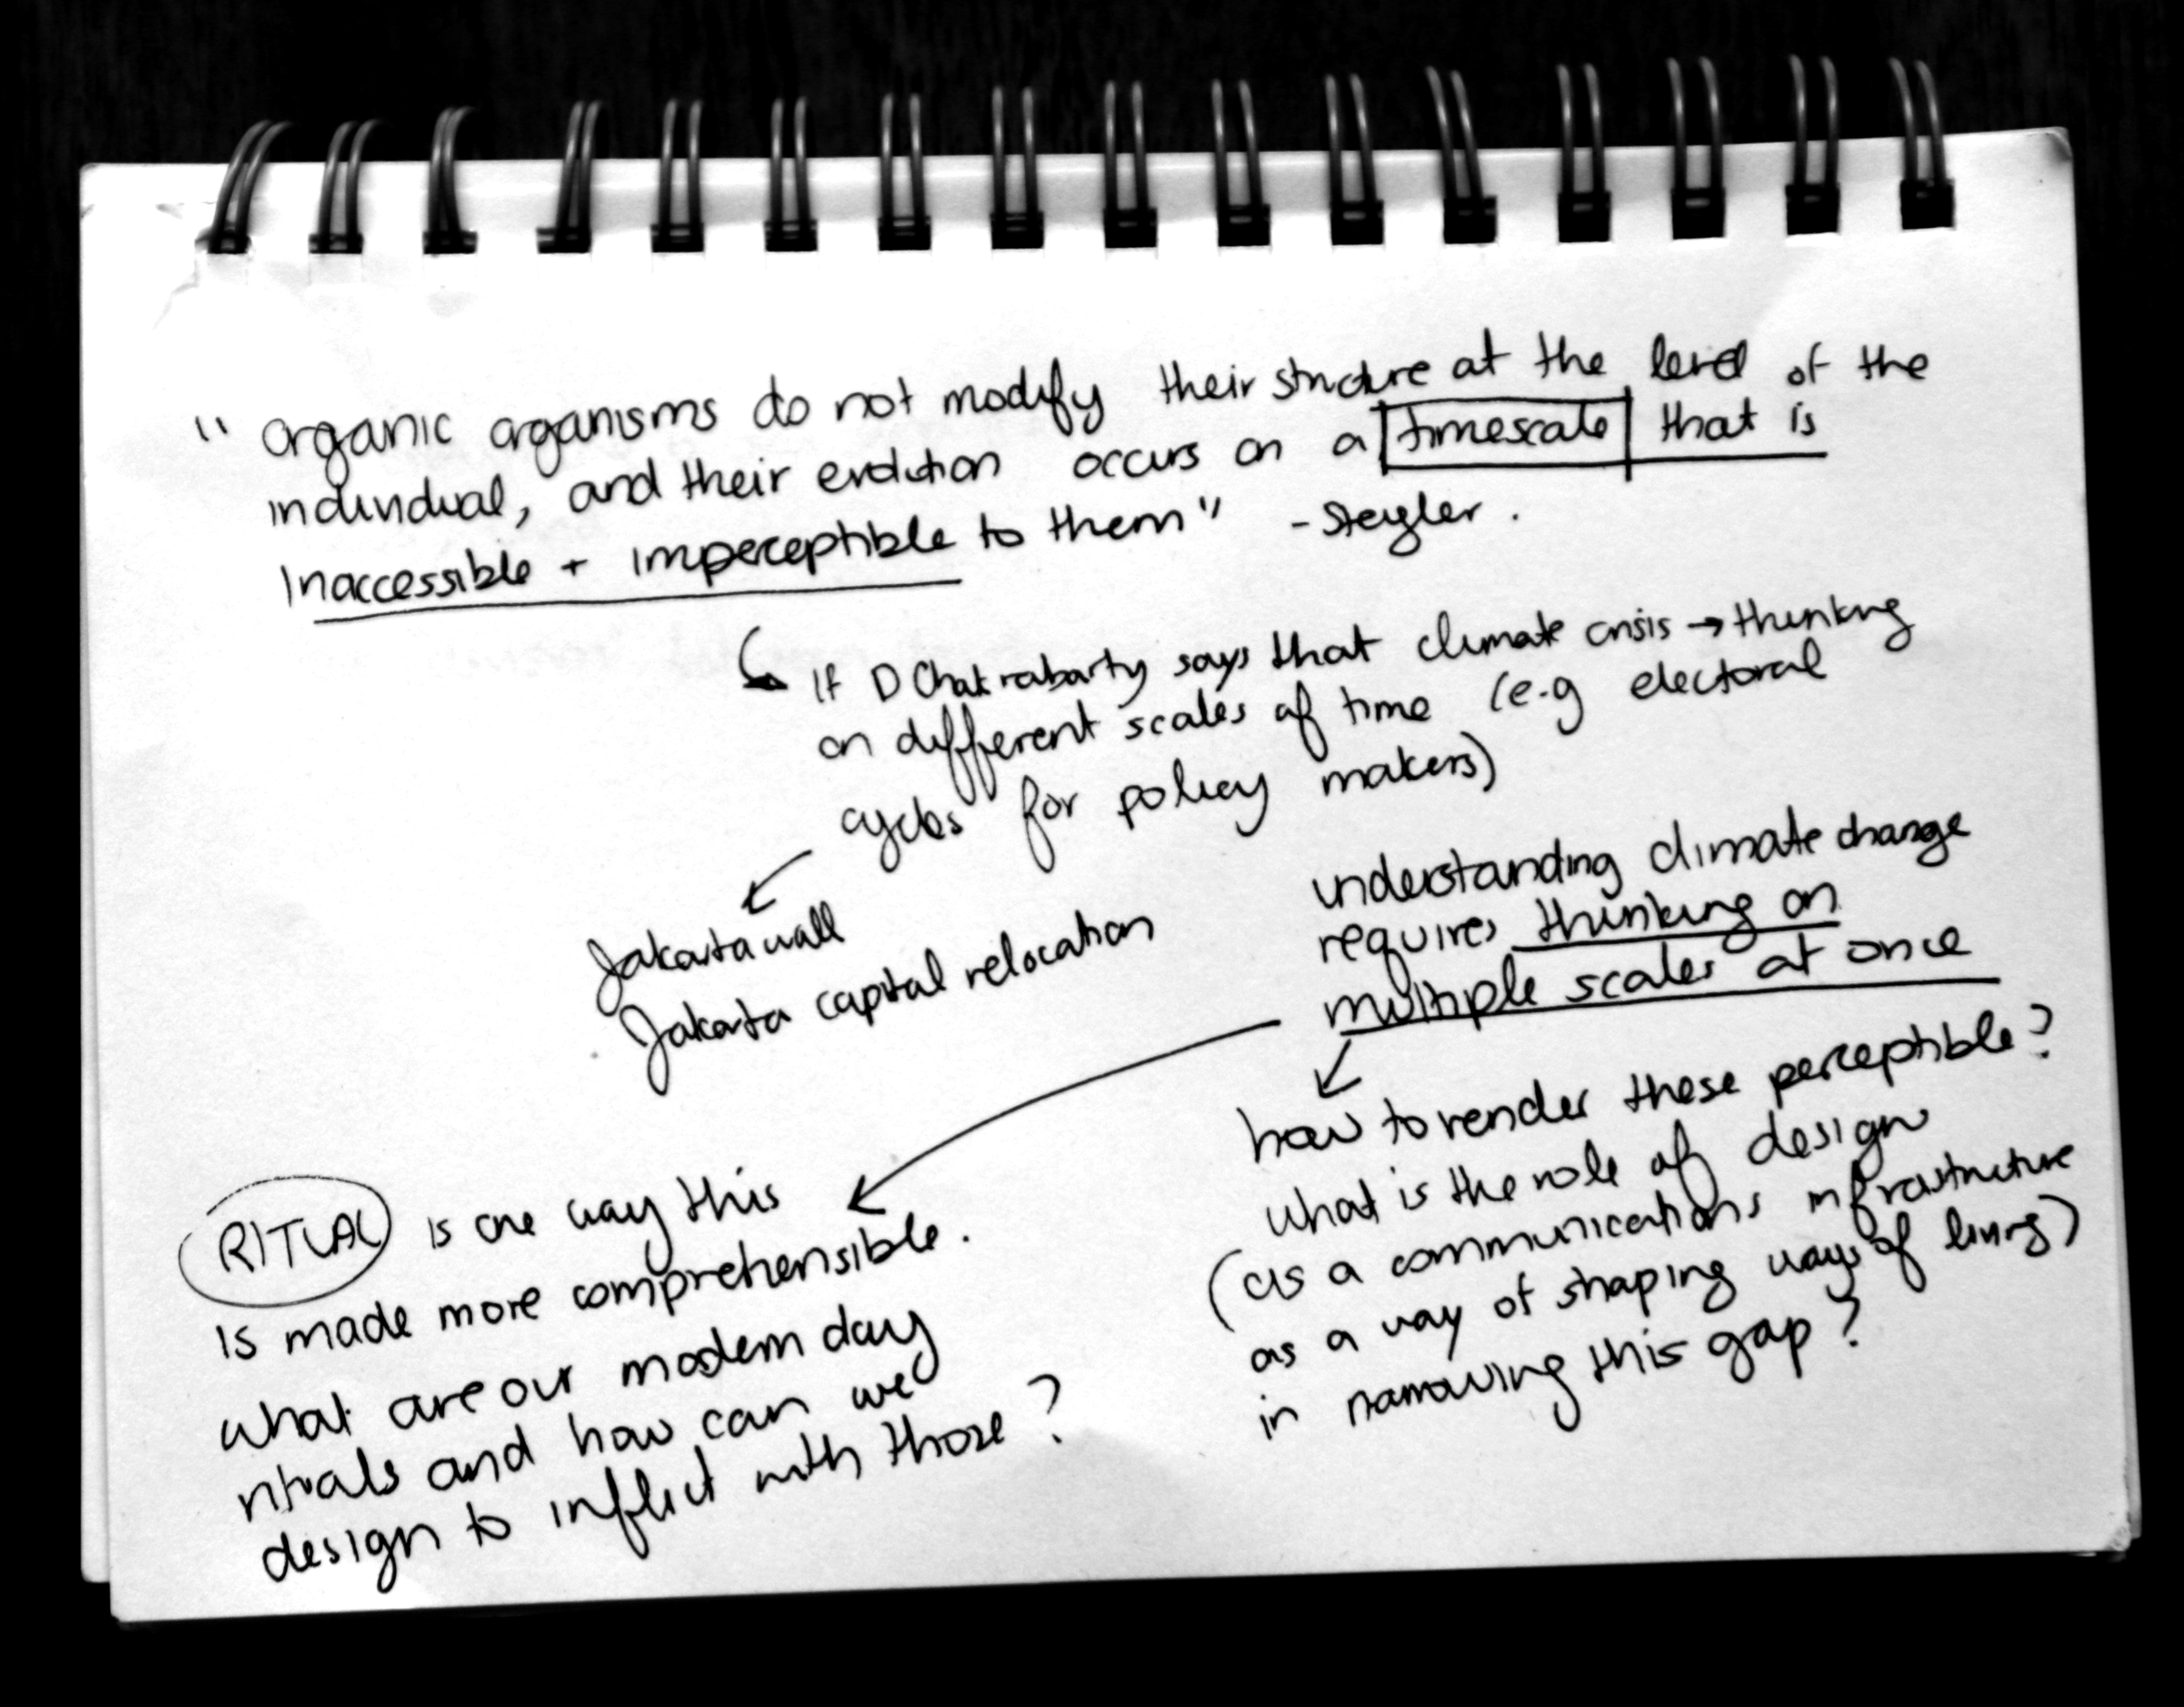 "organic organisms do not modify their structure at the level of the
individual, and their evolution occurs on a timescale that is
inaccessible + imperceptible to them" - Steigler.
If D Chakrabarty says that climate crisis → thinking
on different scales of time (e.g electoral
cycles for policy makers)
Jakarta wall
Jakarta capital relocation
understanding climate change
requires thinking on
multiple scales at once
how to render these perceptible?
what is the role of design
(as a communications infrastructure
as a way of shaping ways of living)
in narrowing this gap?
RITUAL is one way this
is made more comprehensible.
what are our modern day
rituals and how can we
design to inflict with those?